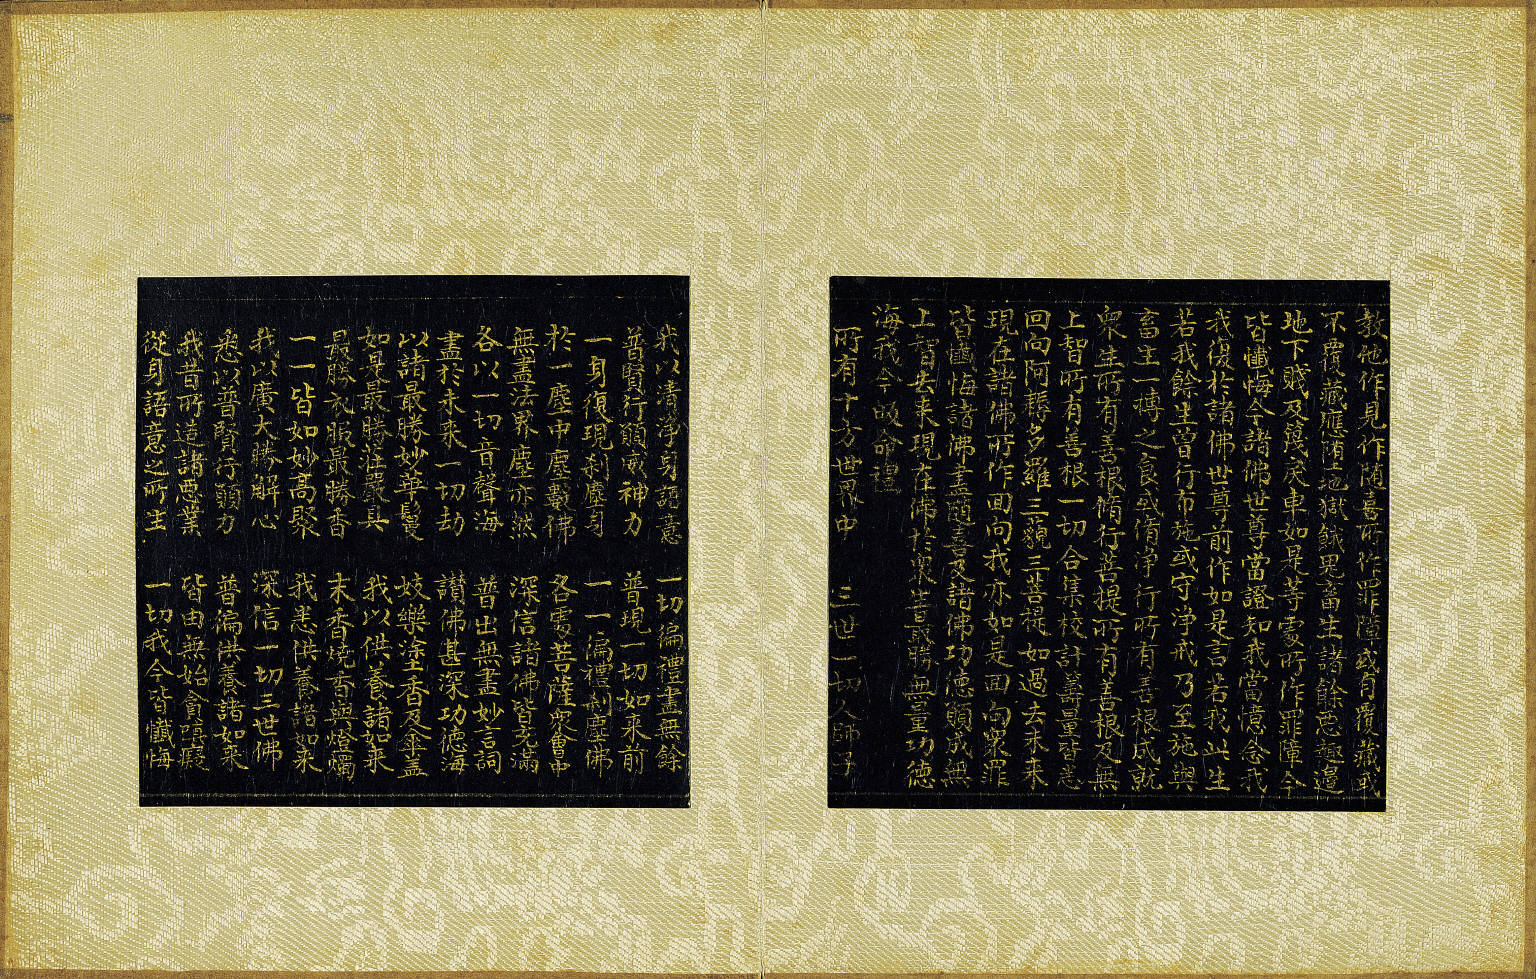 教他作見作随喜所作罪障或有覆藏或
不覆藏應堕地獄餓鬼畜生諸餘惡趣邉
地下賤及篾戾車如是等處所作罪障今
皆懺悔今諸佛世尊當證知我當憶念我
我復於諸佛世尊前作如是言若我此生
若我餘生曽行布施或守净戒乃至施與
畜生一摶之食或脩净行所有善根成就
衆生所有善根脩行菩提所有善根及無
上智所有善根一切合集校計籌量皆悉
回向阿耨多羅三藐三菩提如過去未来
現在諸佛所作回向我亦如是回向衆罪
皆懺悔諸佛盡隨喜及諸佛功德願成無
上智去来現在佛扵衆生最勝無量功德
海我今皈命禮
所有十方世界中 三世一切人師子
我以清淨身語意 一切徧禮盡無餘
普賢行願威神力 普現一切如来前
一身復現刹塵身 一一徧禮刹塵佛
扵一塵中塵數佛 各處菩薩衆會中
無盡法界塵亦然 深信諸佛皆充滿
各以一切音聲海 普出無盡妙言詞
盡扵未来一切劫 讃佛甚深功德海
以諸最勝妙華鬘 妓樂塗香及傘盖
如是最勝莊嚴具 我以供養諸如来
最勝衣服最勝香 末香燒香與燈燭
一一皆如妙髙聚 我悉供養諸如来
我以廣大勝解心 深信一切三世佛
悉以普賢行願力 普徧供養諸如来
我昔所造諸惡業 皆由無始貪瞋癡
從身語意之所生 一切我今皆懺悔